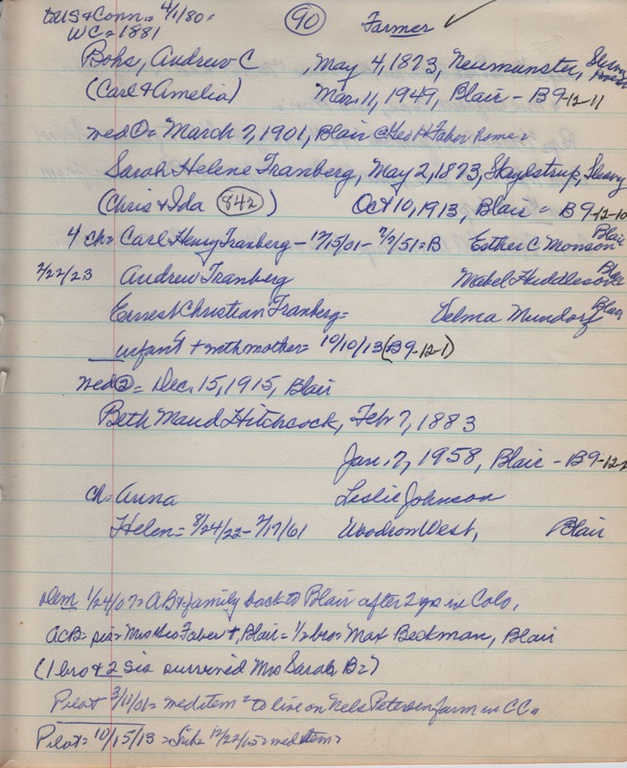 to US & Conn = 4/1/80 = (90) Farmer ✓
WC = 1881
Bohs, Andrew C , May 4, 1873, Neumunster,
(Carl & Amelia) Mar. 11, 1949, Blair - B9-12-11
med ① = March 7, 1901, Blair @ Geo H Faber home =
Sarah Helene Tranberg, May 2, 1873,
(Chris & Ida (842)) Oct 10, 1913, Blair = B 9-12-10
4 ch = Carl Henry Tranberg - - 7/7/51 = B Esther C Monson Blair
2/22/23 Andrew Tranberg Mabel Huddleson Blair
Ernest Christian Tranberg = Velma Mundorf Blair
infant + with mother = 10/10/13 (B9-12-1)
med ② = Dec. 15, 1915, Blair
Beth Maud Hitchcock, Feb 7, 1883
Jan. 7, 1958, Blair - B9-12-
ch = Anna Leslie Johnson
Helen = 8/24/22 - 2/17/61 Woodrow West, Blair
Dem 1/24/07 = AB & family back to Blair after 2 yrs in Colo,
ACB = sis = Mrs Geo Faber +, Blair = 1/2 bro = Max Beckman, Blair
(1 bro & 2 sis survived Mrs Sarah B =)
Pilot 3/11/01 = med item = to live on Nels Petersen farm in CC =
Pilot = 10/15/13 = 12/22/15 = med item =